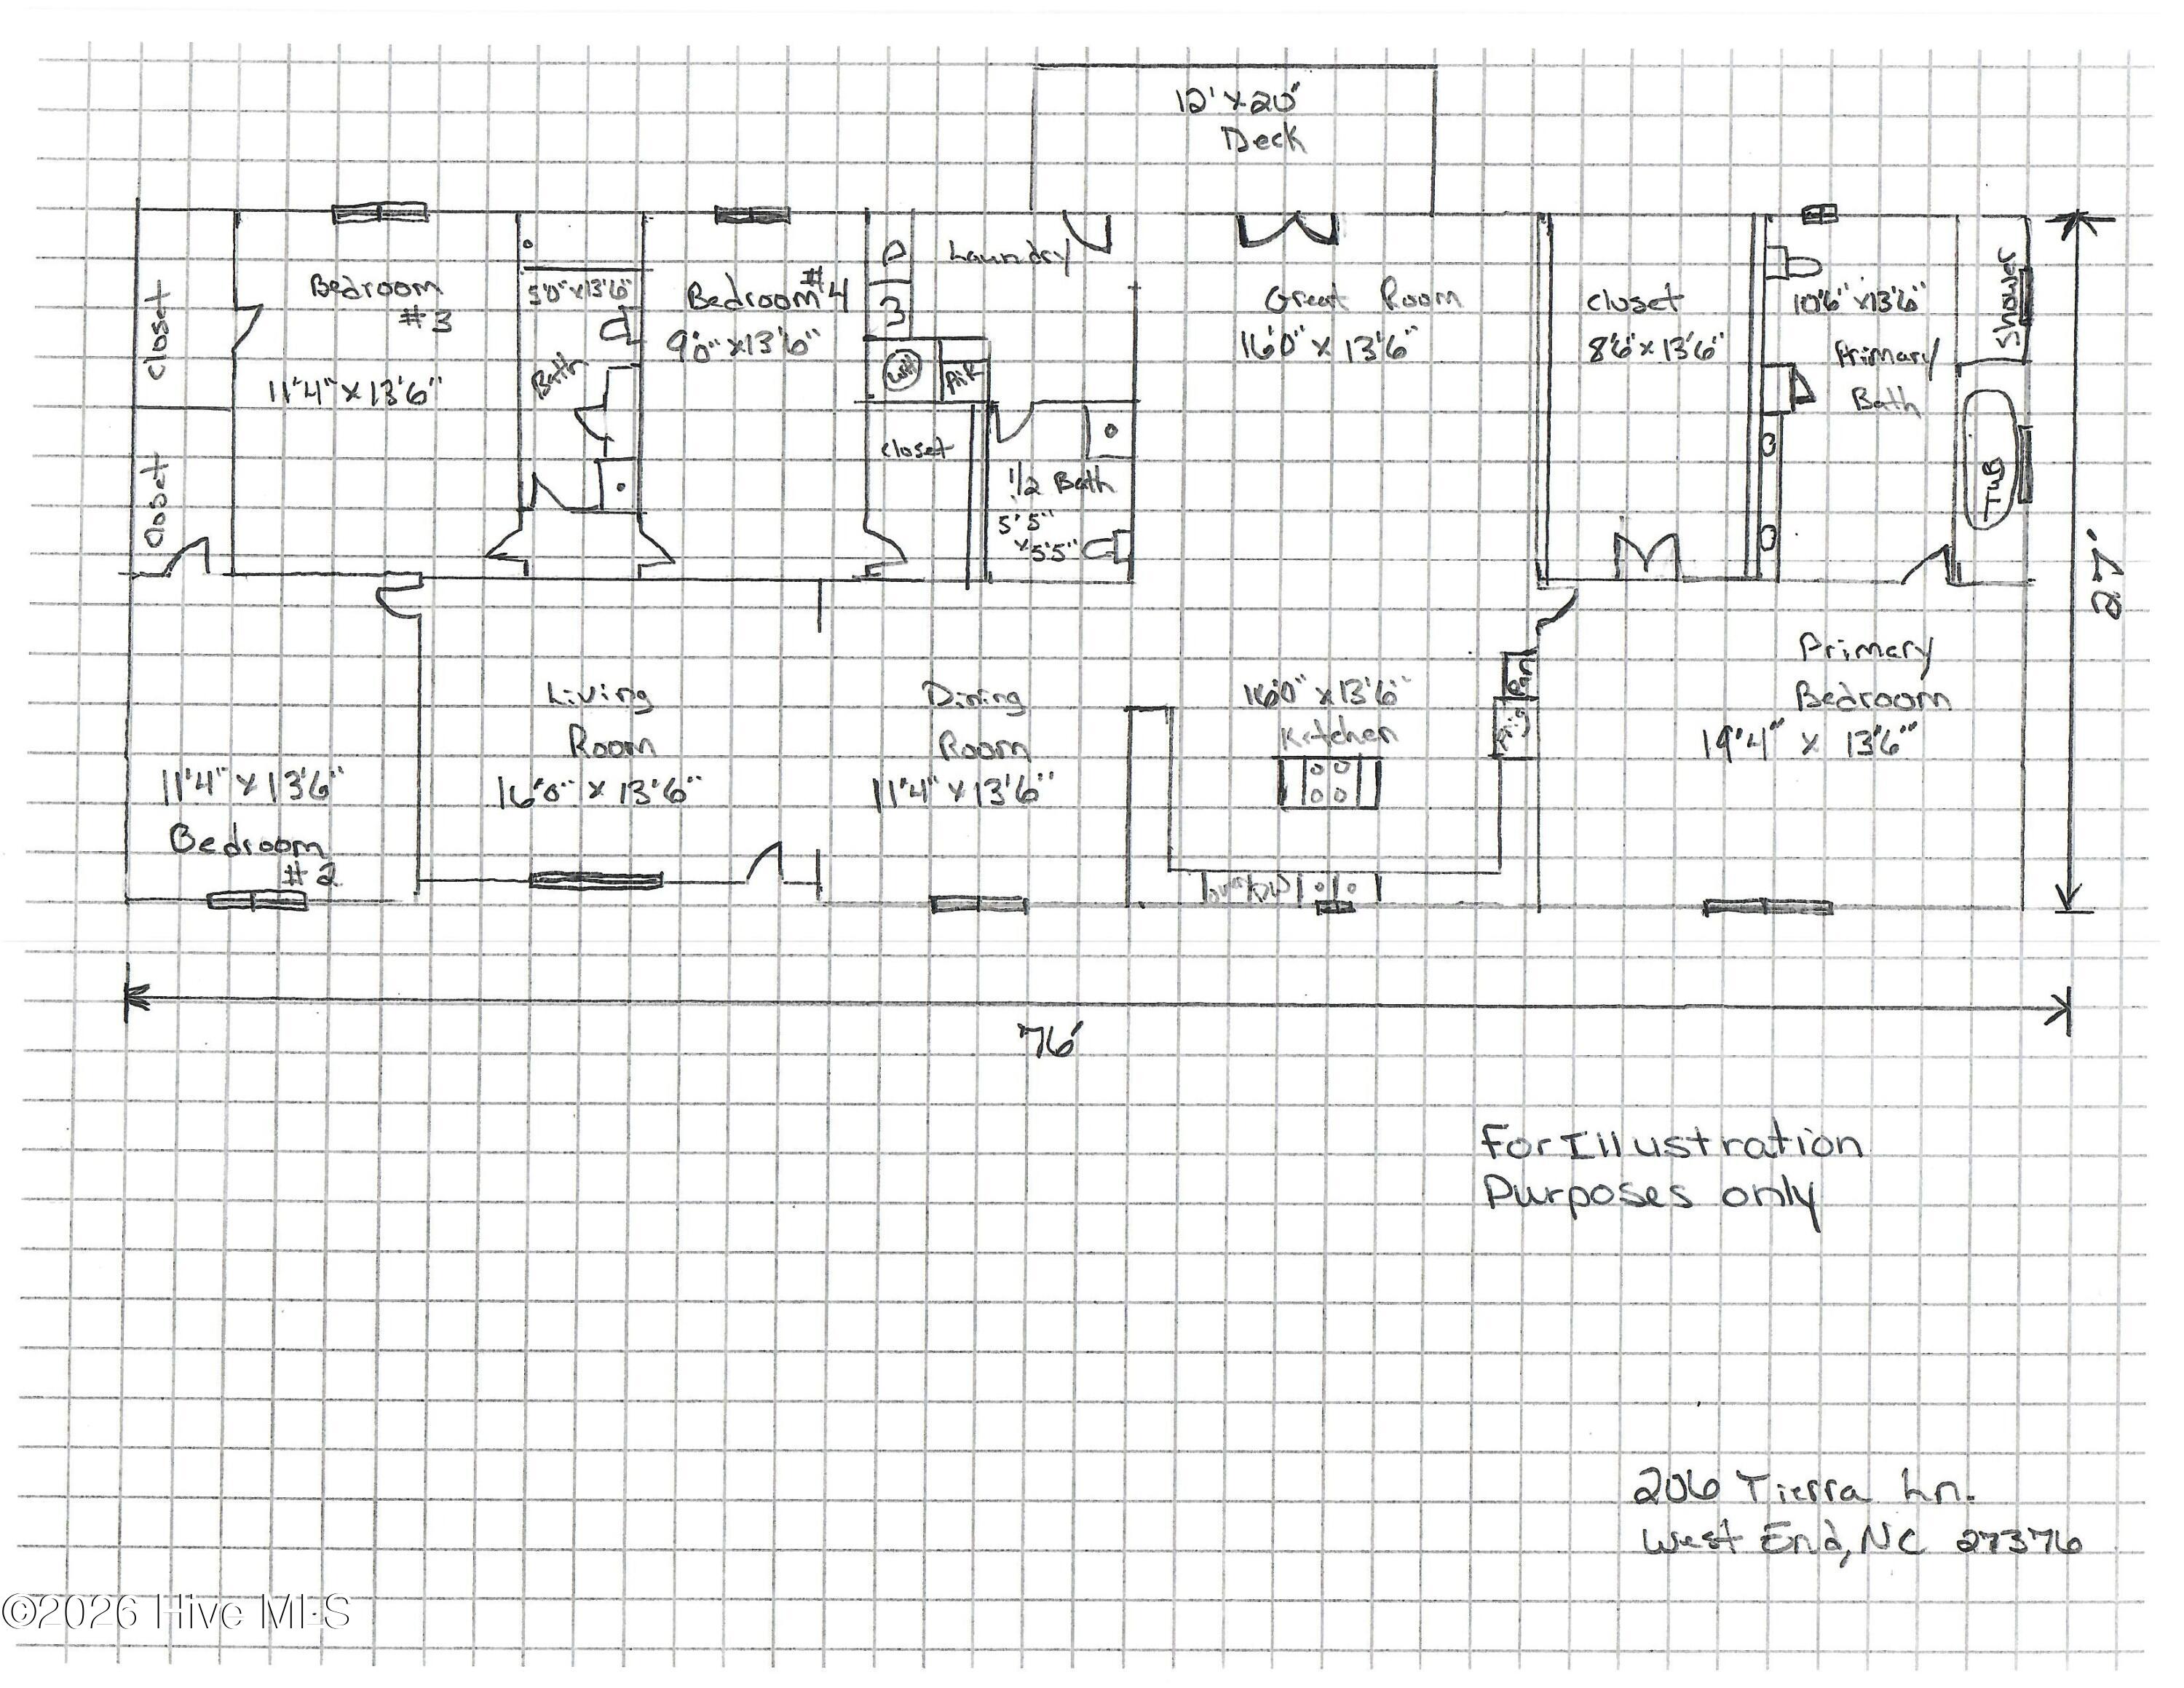 12' x 20'
Deck
Closet
Closet
Bedroom
#3
11'4" x 13'6"
5'0" x 13'6"
Bath
Bedroom #4
9'0" x 13'6"
D
W
Laundry
WH
closet
1/2 Bath
5'5"
x 5'5"
Great Room
16'0" x 13'6"
closet
8'6" x 13'6"
10'6" x 13'6"
Primary
Bath
Shower
TUB
27'
11'4" x 13'6"
Bedroom
#2
Living
Room
16'0" x 13'6"
Dining
Room
11'4" x 13'6"
16'0" x 13'6"
Kitchen
Pan
DW
Primary
Bedroom
19'4" x 13'6"
76'
For Illustration
Purposes only
206 Tierra Ln.
West End, NC 27376
©2026 Hive MLS